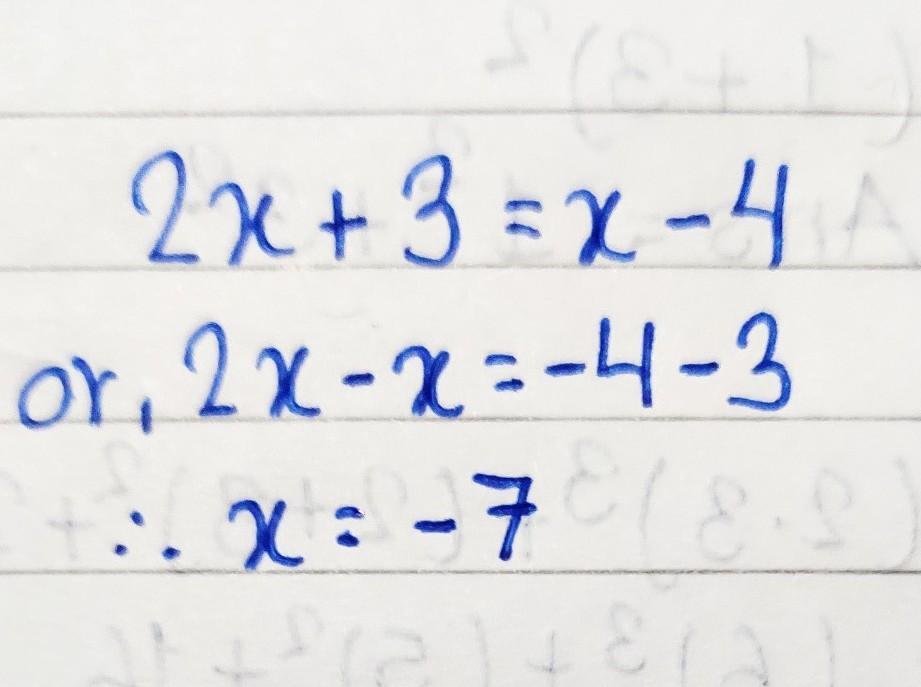 2x + 3 = x - 4
or, 2x - x = -4 - 3
∴ x = -7